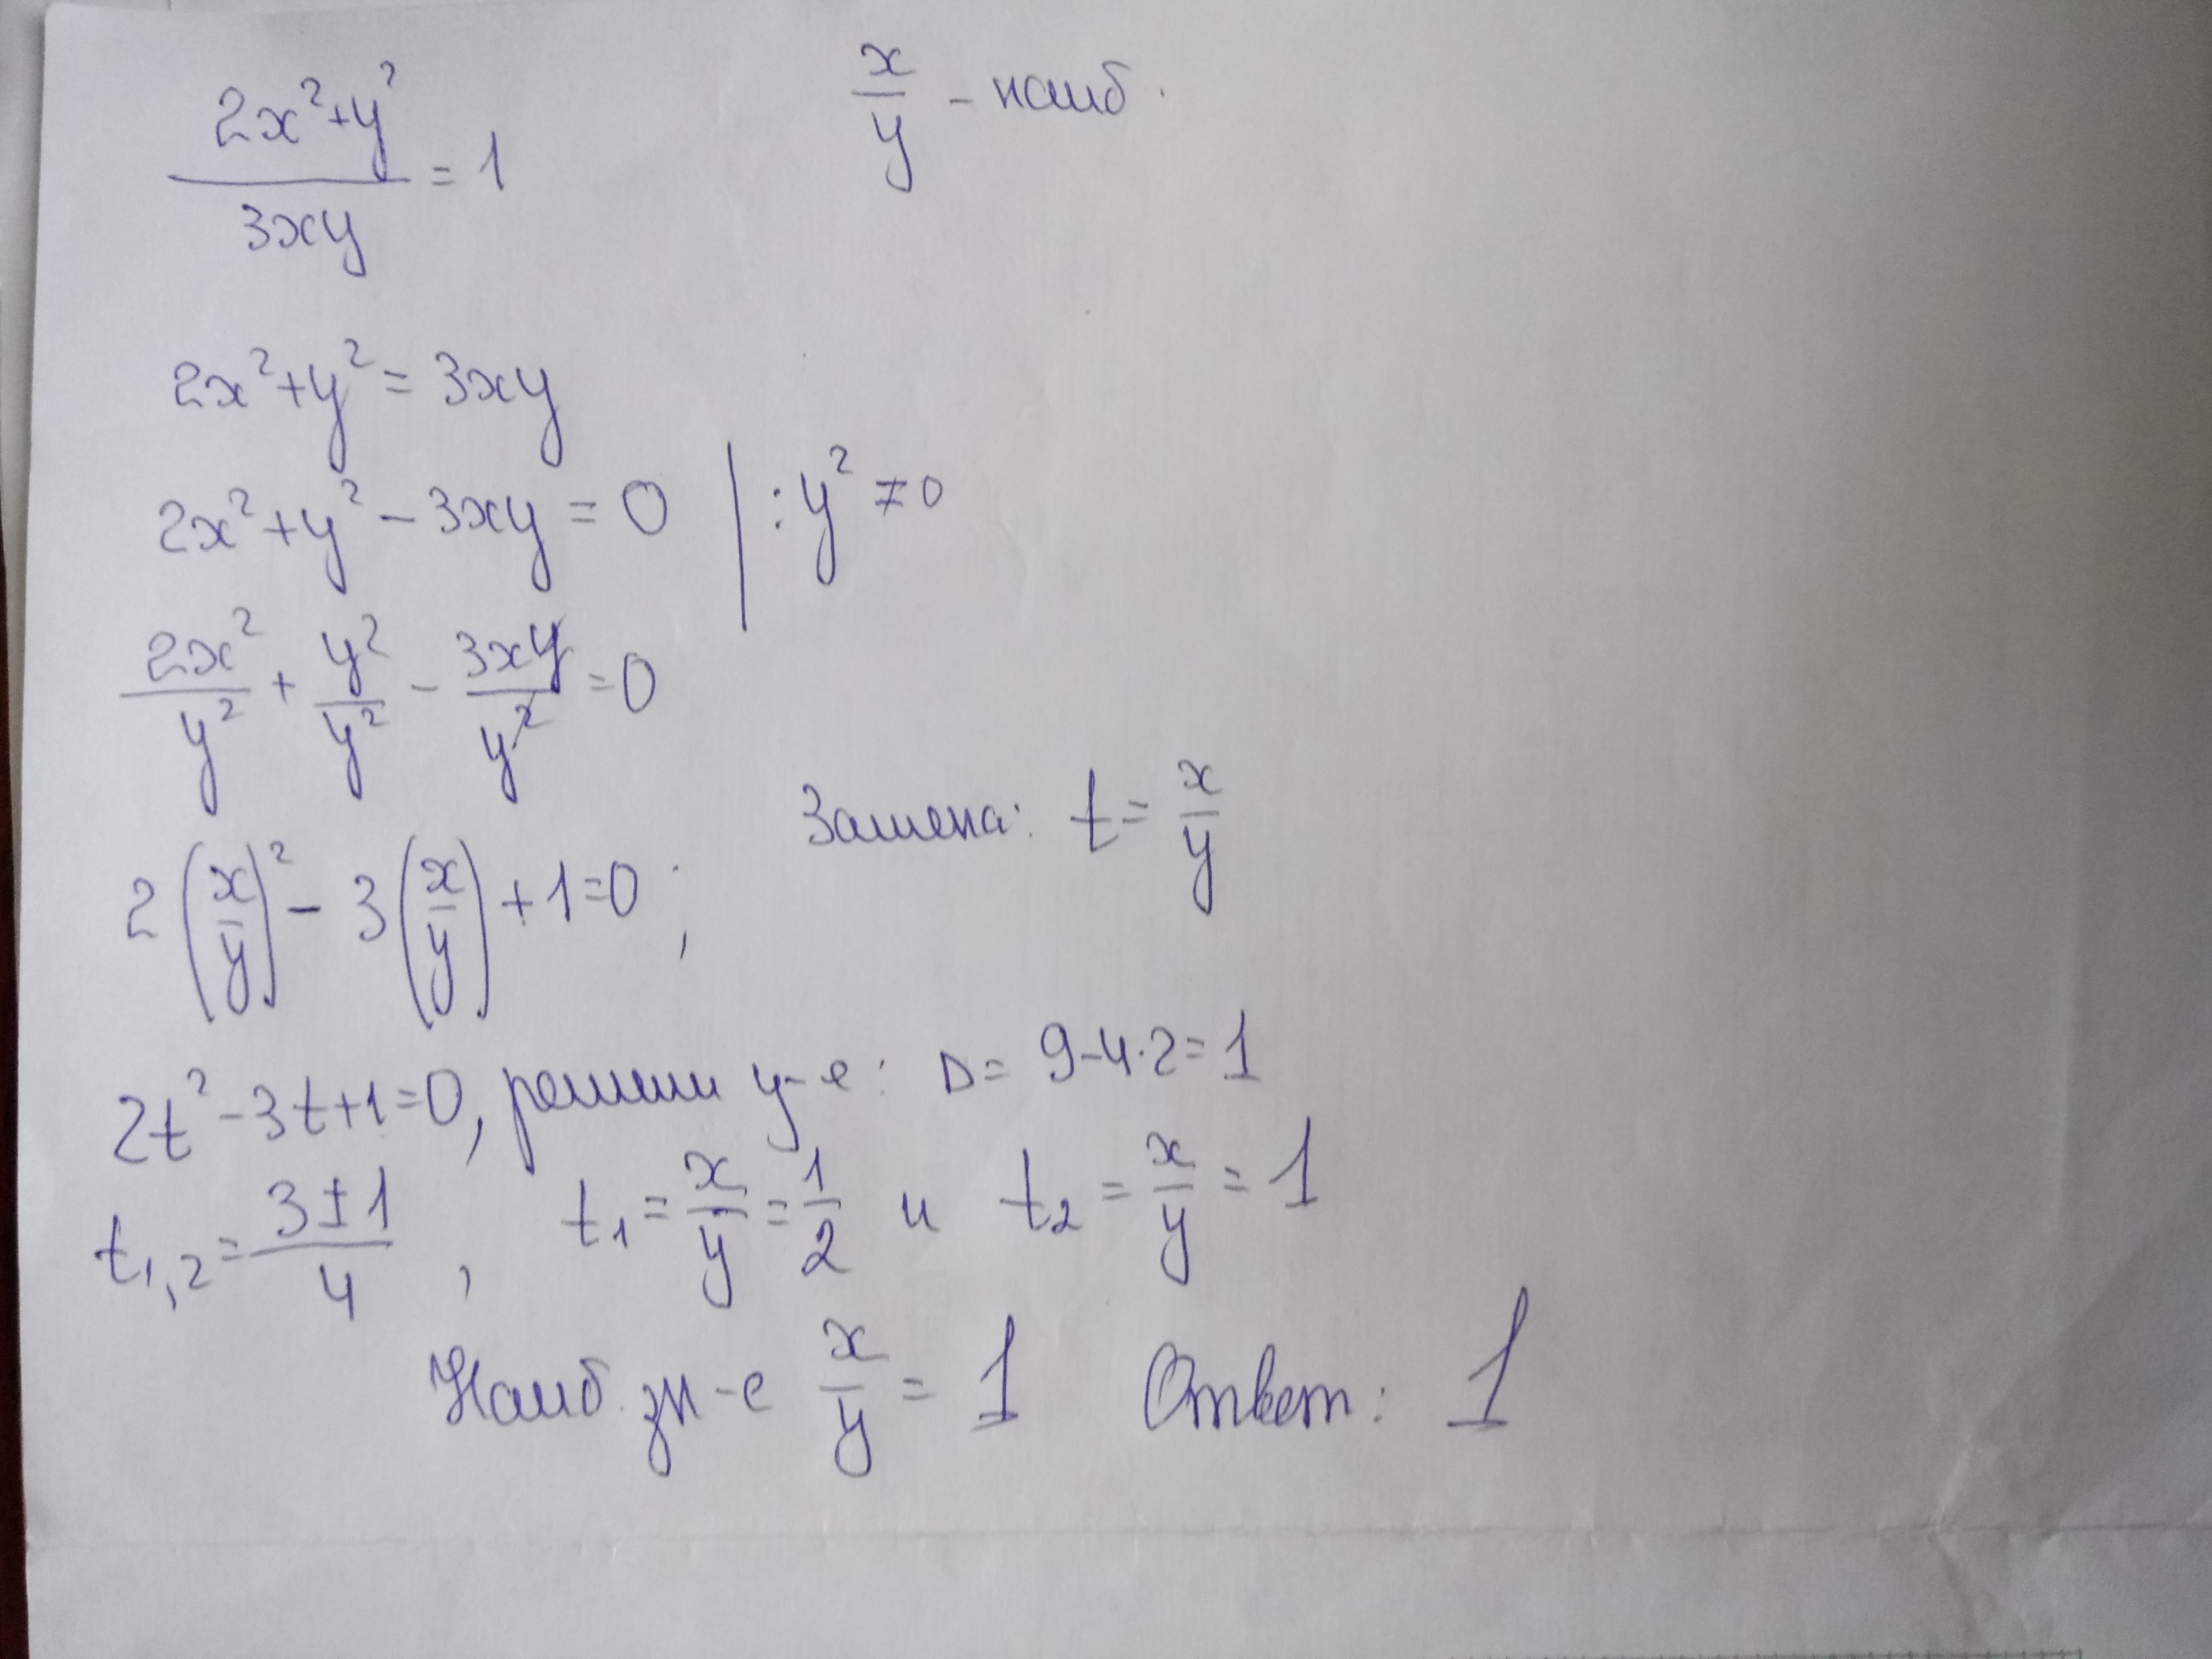 (2x²+y²)/(3xy) = 1    x/y - наиб.
2x²+y² = 3xy
2x²+y²-3xy = 0 | :y² ≠ 0
2x²/y² + y²/y² - 3xy/y² = 0
Замена: t = x/y
2(x/y)² - 3(x/y) + 1 = 0;
2t²-3t+1=0, решим у-е: D = 9-4·2 = 1
t₁,₂ = (3±1)/4, t₁ = x/y = 1/2 и t₂ = x/y = 1
Наиб. зн-е x/y = 1    Ответ: 1